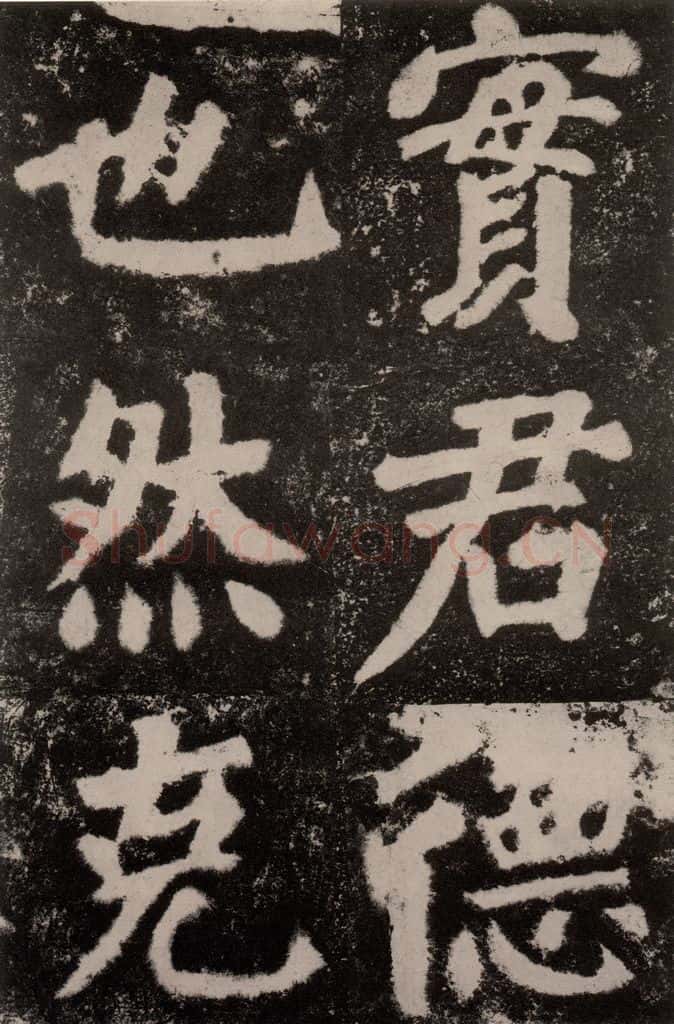 實君德
也然克
Shufawang.CN